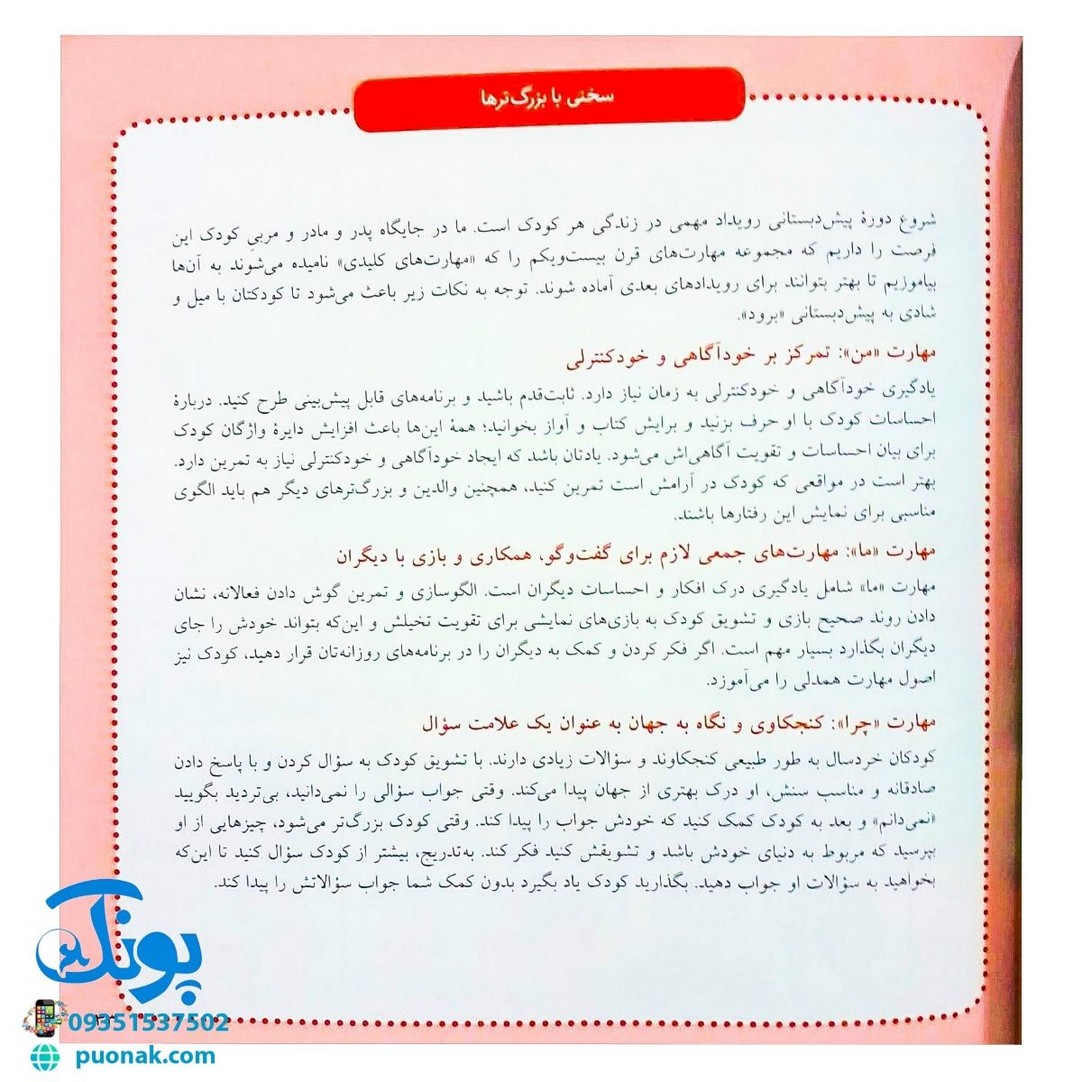 سخنی با بزرگ‌ترها
شروع دورهٔ پیش‌دبستانی رویداد مهمی در زندگی هر کودک است. ما در جایگاه پدر و مادر و مربیِ کودک این
فرصت را داریم که مجموعه مهارت‌های قرن بیست‌ویکم را که «مهارت‌های کلیدی» نامیده می‌شوند به آن‌ها
بیاموزیم تا بهتر بتوانند برای رویدادهای بعدی آماده شوند. توجه به نکات زیر باعث می‌شود تا کودکتان با میل و
شادی به پیش‌دبستانی «برود».
مهارت «من»: تمرکز بر خودآگاهی و خودکنترلی
یادگیری خودآگاهی و خودکنترلی به زمان نیاز دارد. ثابت‌قدم باشید و برنامه‌های قابل پیش‌بینی طرح کنید. دربارهٔ
احساسات کودک با او حرف بزنید و برایش کتاب و آواز بخوانید؛ همهٔ این‌ها باعث افزایش دایرهٔ واژگان کودک
برای بیان احساسات و تقویت آگاهی‌اش می‌شود. یادتان باشد که ایجاد خودآگاهی و خودکنترلی نیاز به تمرین دارد.
بهتر است در مواقعی که کودک در آرامش است تمرین کنید، همچنین والدین و بزرگ‌ترهای دیگر هم باید الگوی
مناسبی برای نمایش این رفتارها باشند.
مهارت «ما»: مهارت‌های جمعی لازم برای گفت‌وگو، همکاری و بازی با دیگران
مهارت «ما» شامل یادگیری درک افکار و احساسات دیگران است. الگوسازی و تمرین گوش دادن فعالانه، نشان
دادن روند صحیح بازی و تشویق کودک به بازی‌های نمایشی برای تقویت تخیلش و این‌که بتواند خودش را جای
دیگران بگذارد بسیار مهم است. اگر فکر کردن و کمک به دیگران را در برنامه‌های روزانه‌تان قرار دهید، کودک نیز
اصول مهارت همدلی را می‌آموزد.
مهارت «چرا»: کنجکاوی و نگاه به جهان به عنوان یک علامت سؤال
کودکان خردسال به طور طبیعی کنجکاوند و سؤالات زیادی دارند. با تشویق کودک به سؤال کردن و با پاسخ دادن
صادقانه و مناسب سنش، او درک بهتری از جهان پیدا می‌کند. وقتی جواب سؤالی را نمی‌دانید، بی‌تردید بگویید
«نمی‌دانم» و بعد به کودک کمک کنید که خودش جواب را پیدا کند. وقتی کودک بزرگ‌تر می‌شود، چیزهایی از او
بپرسید که مربوط به دنیای خودش باشد و تشویقش کنید فکر کند. به‌تدریج، بیشتر از کودک سؤال کنید تا این‌که
بخواهید به سؤالات او جواب دهید. بگذارید کودک یاد بگیرد بدون کمک شما جواب سؤالاتش را پیدا کند.
پونک
09351537502
puonak.com